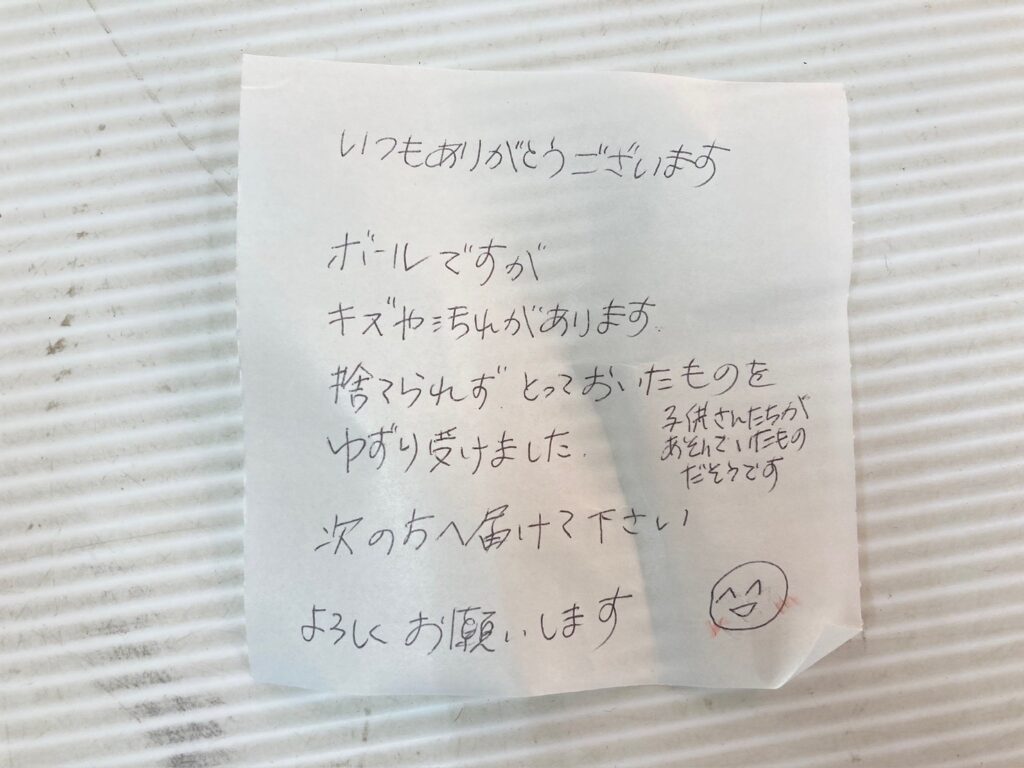 いつもありがとうございます
ボールですが
キズや汚れがあります
捨てられず とっておいたものを
ゆずり受けました.
子供さんたちが
あそんでいたもの
だそうです
次の方へ届けて下さい
よろしくお願いします